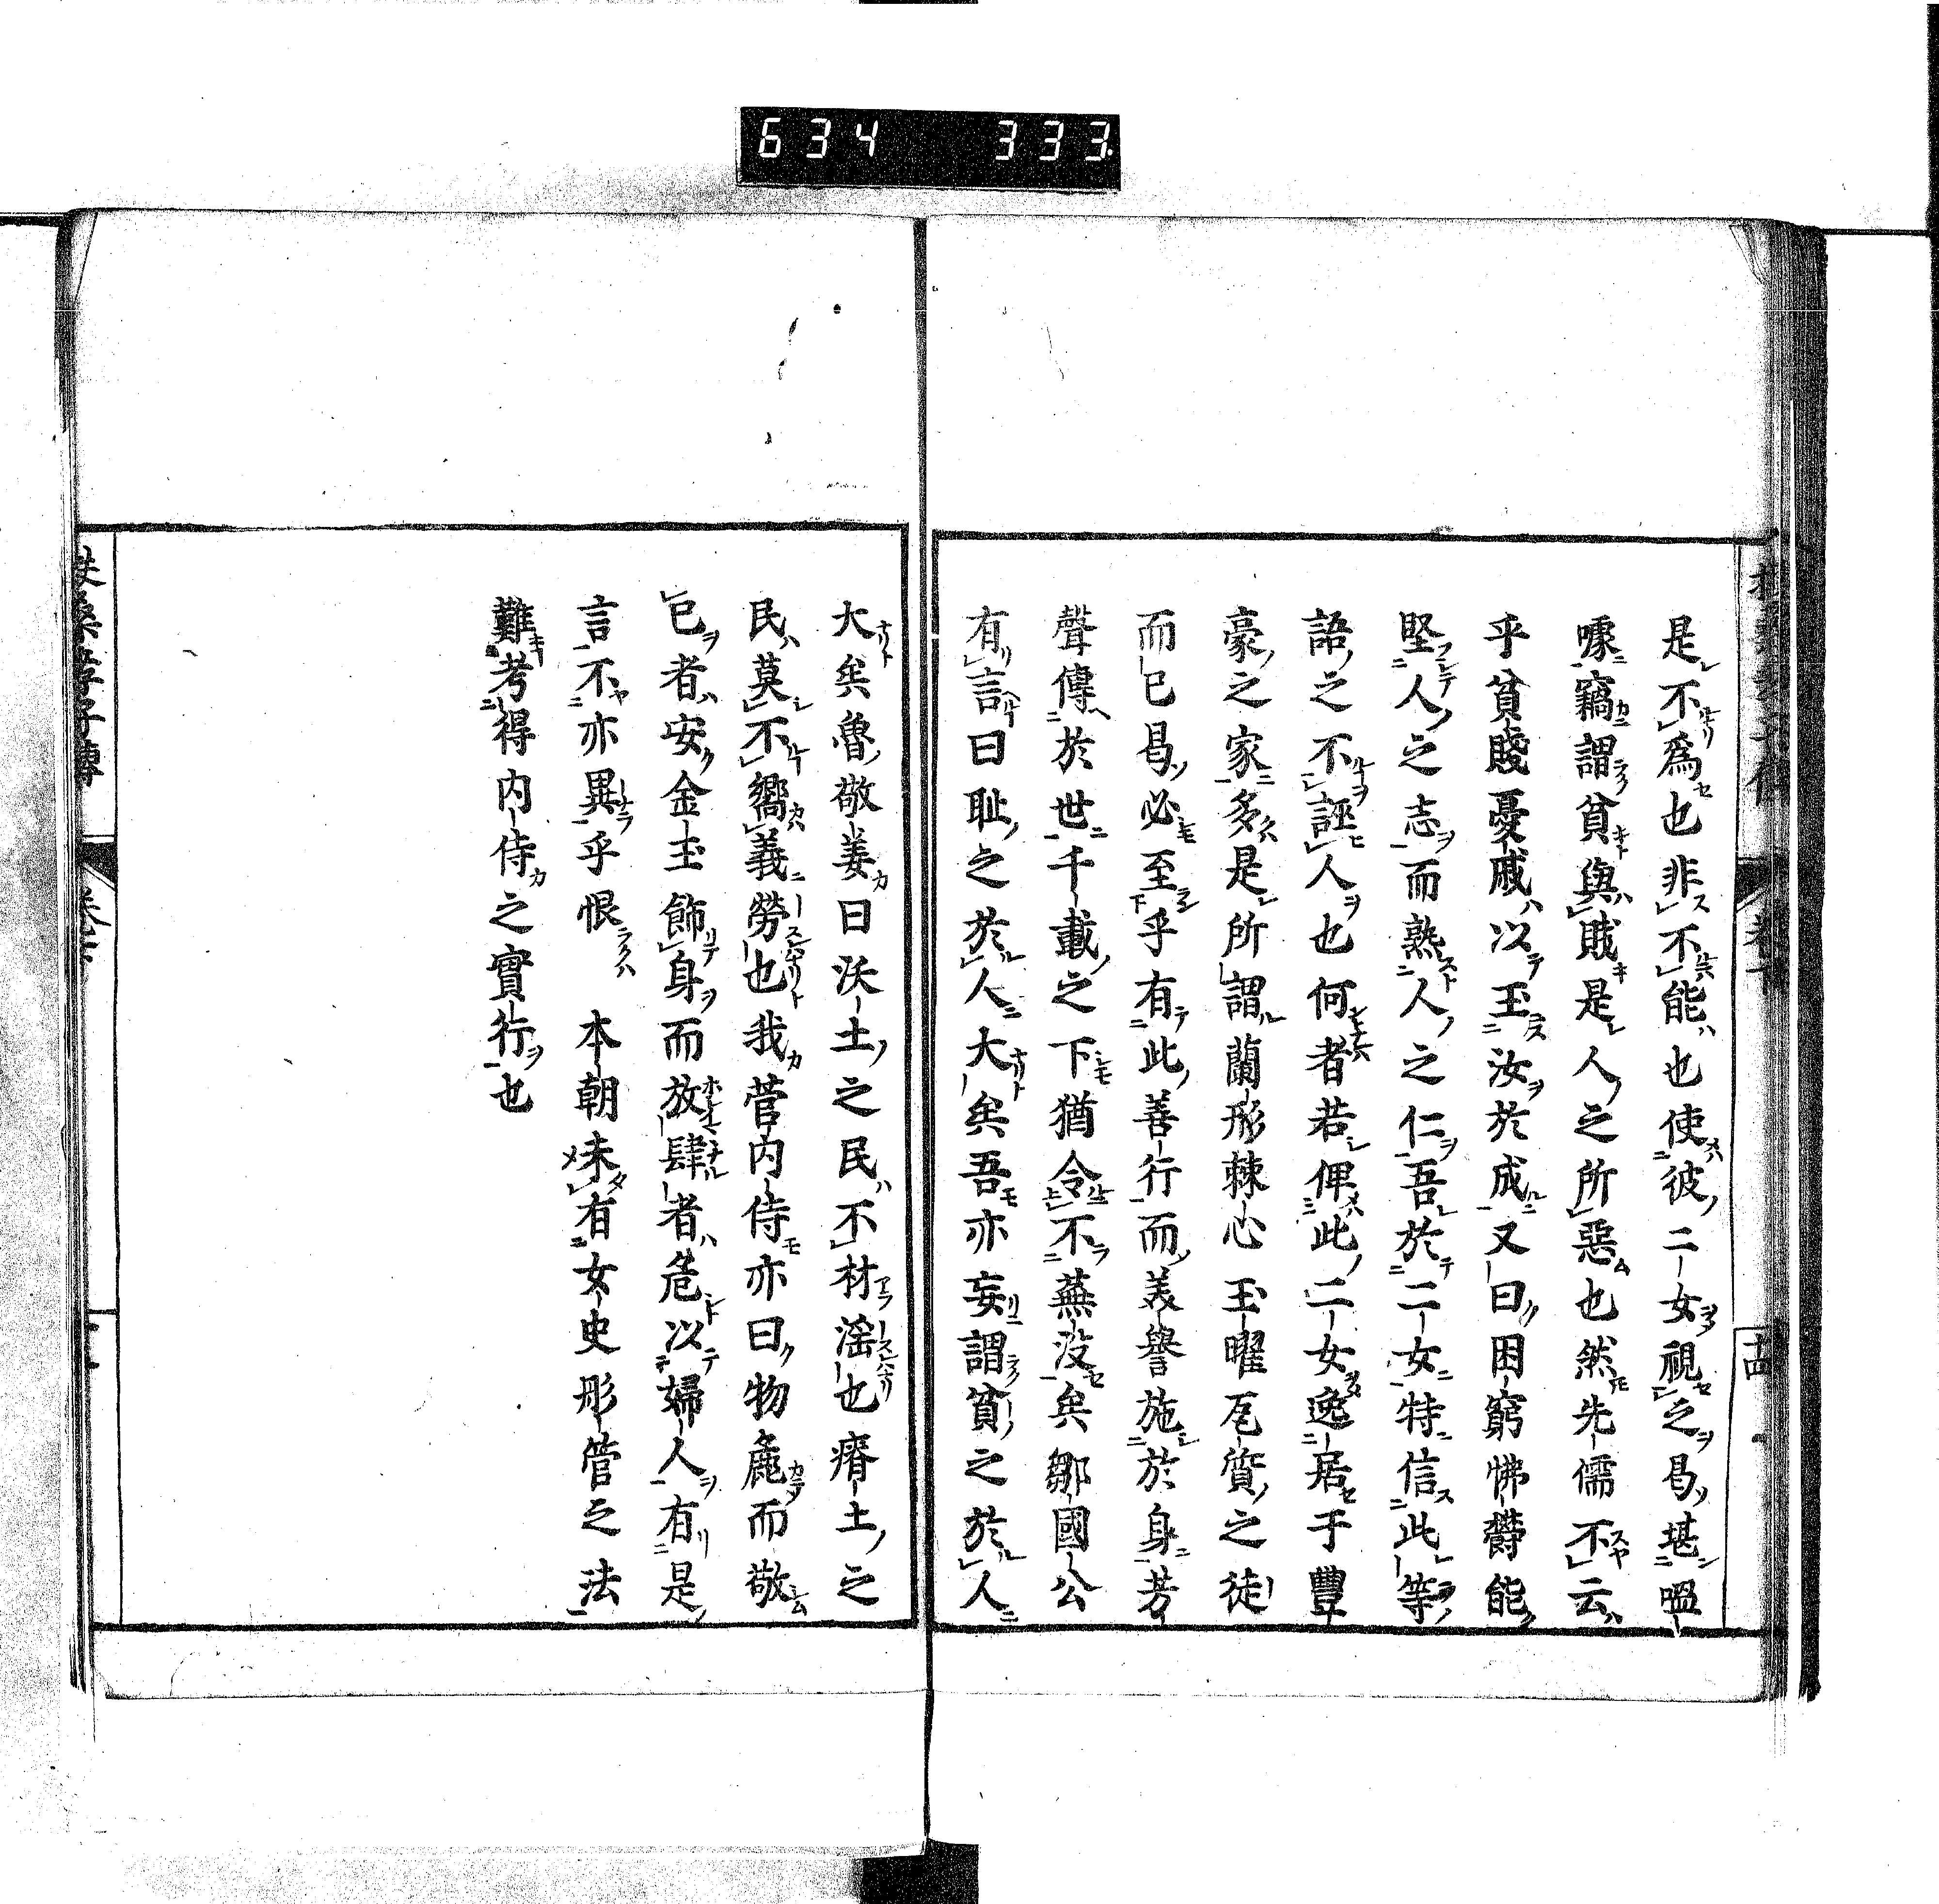 634 333
是不爲也非不能也使彼二女視之曷堪嗢
噱竊謂貧與賎是人之所惡也然先儒不云
乎貧賎憂戚以玉汝於成又曰困窮怫欝能
堅人之志而熟人之仁吾於二女特信此等
語之不誣人也何者若俾此二女逸居于豐
豪之家多是所謂蘭形棘心玉曜瓦質之徒
而已曷必至乎有此善行而美譽施於身芳
聲傳於世千載之下猶令不蕪没矣鄒國公
有言曰耻之於人大矣吾亦妄謂貧之於人
十四
大矣魯敬姜曰沃土之民不材滛也瘠土之
民莫不嚮義勞也我菅内侍亦曰物麁而敬
已者安金玉飾身而放肆者危以婦人有是
言不亦異乎恨 本朝未有女史彤管之法
難考得内侍之實行也
扶桑孝子傳